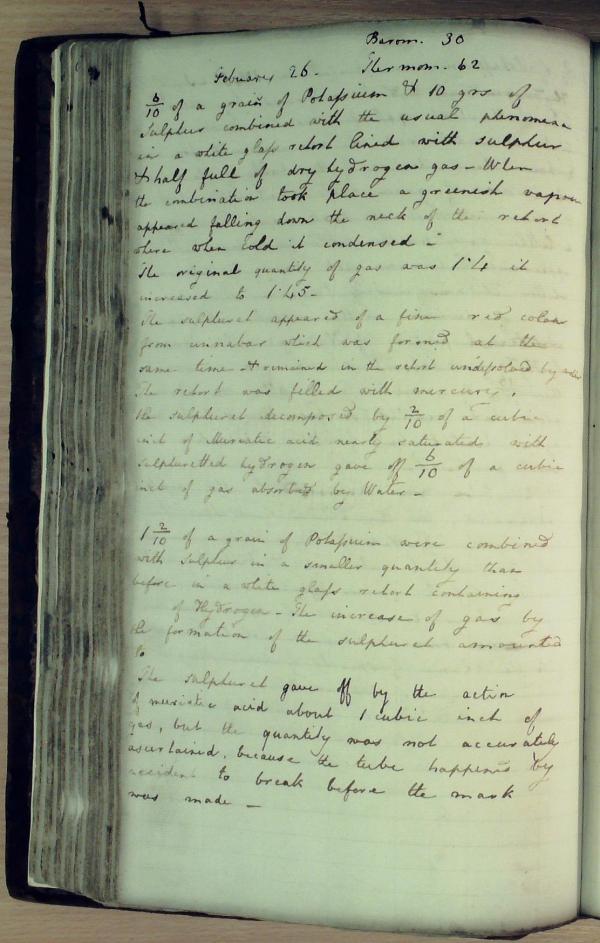 Barom. 30
February 26. Thermom. 62
6/10 of a grain of Potassium & 10 grs of
Sulphur combined with the usual phenomena
in a white glass retort lined with sulphur
& half full of dry hydrogen gas - When
the combination took place a greenish vapour
appeared falling down the neck of the retort
where when cold it condensed -
The original quantity of gas was 1·4 it
increased to 1·45 -
The sulphuret appeared of a fine red colour
from cinnabar which was formed at the
same time & remained in the retort undissolved by
The retort was filled with mercury.
the sulphuret decomposed by 2/10 of a cubic
inch of Muriatic acid nearly saturated with
sulphuretted hydrogen gave off 6/10 of a cubic
inch of gas absorbed by Water -
1 2/10 of a grain of Potassium were combined
with sulphur in a smaller quantity than
before in a white glass retort containing
of Hydrogen - The increase of gas by
the formation of the sulphuret amounted
to
The sulphuret gave off by the action
of muriatic acid about 1 cubic inch of
gas, but the quantity was not accurately
ascertained, because the tube happened by
accident to break before the mark
was made -